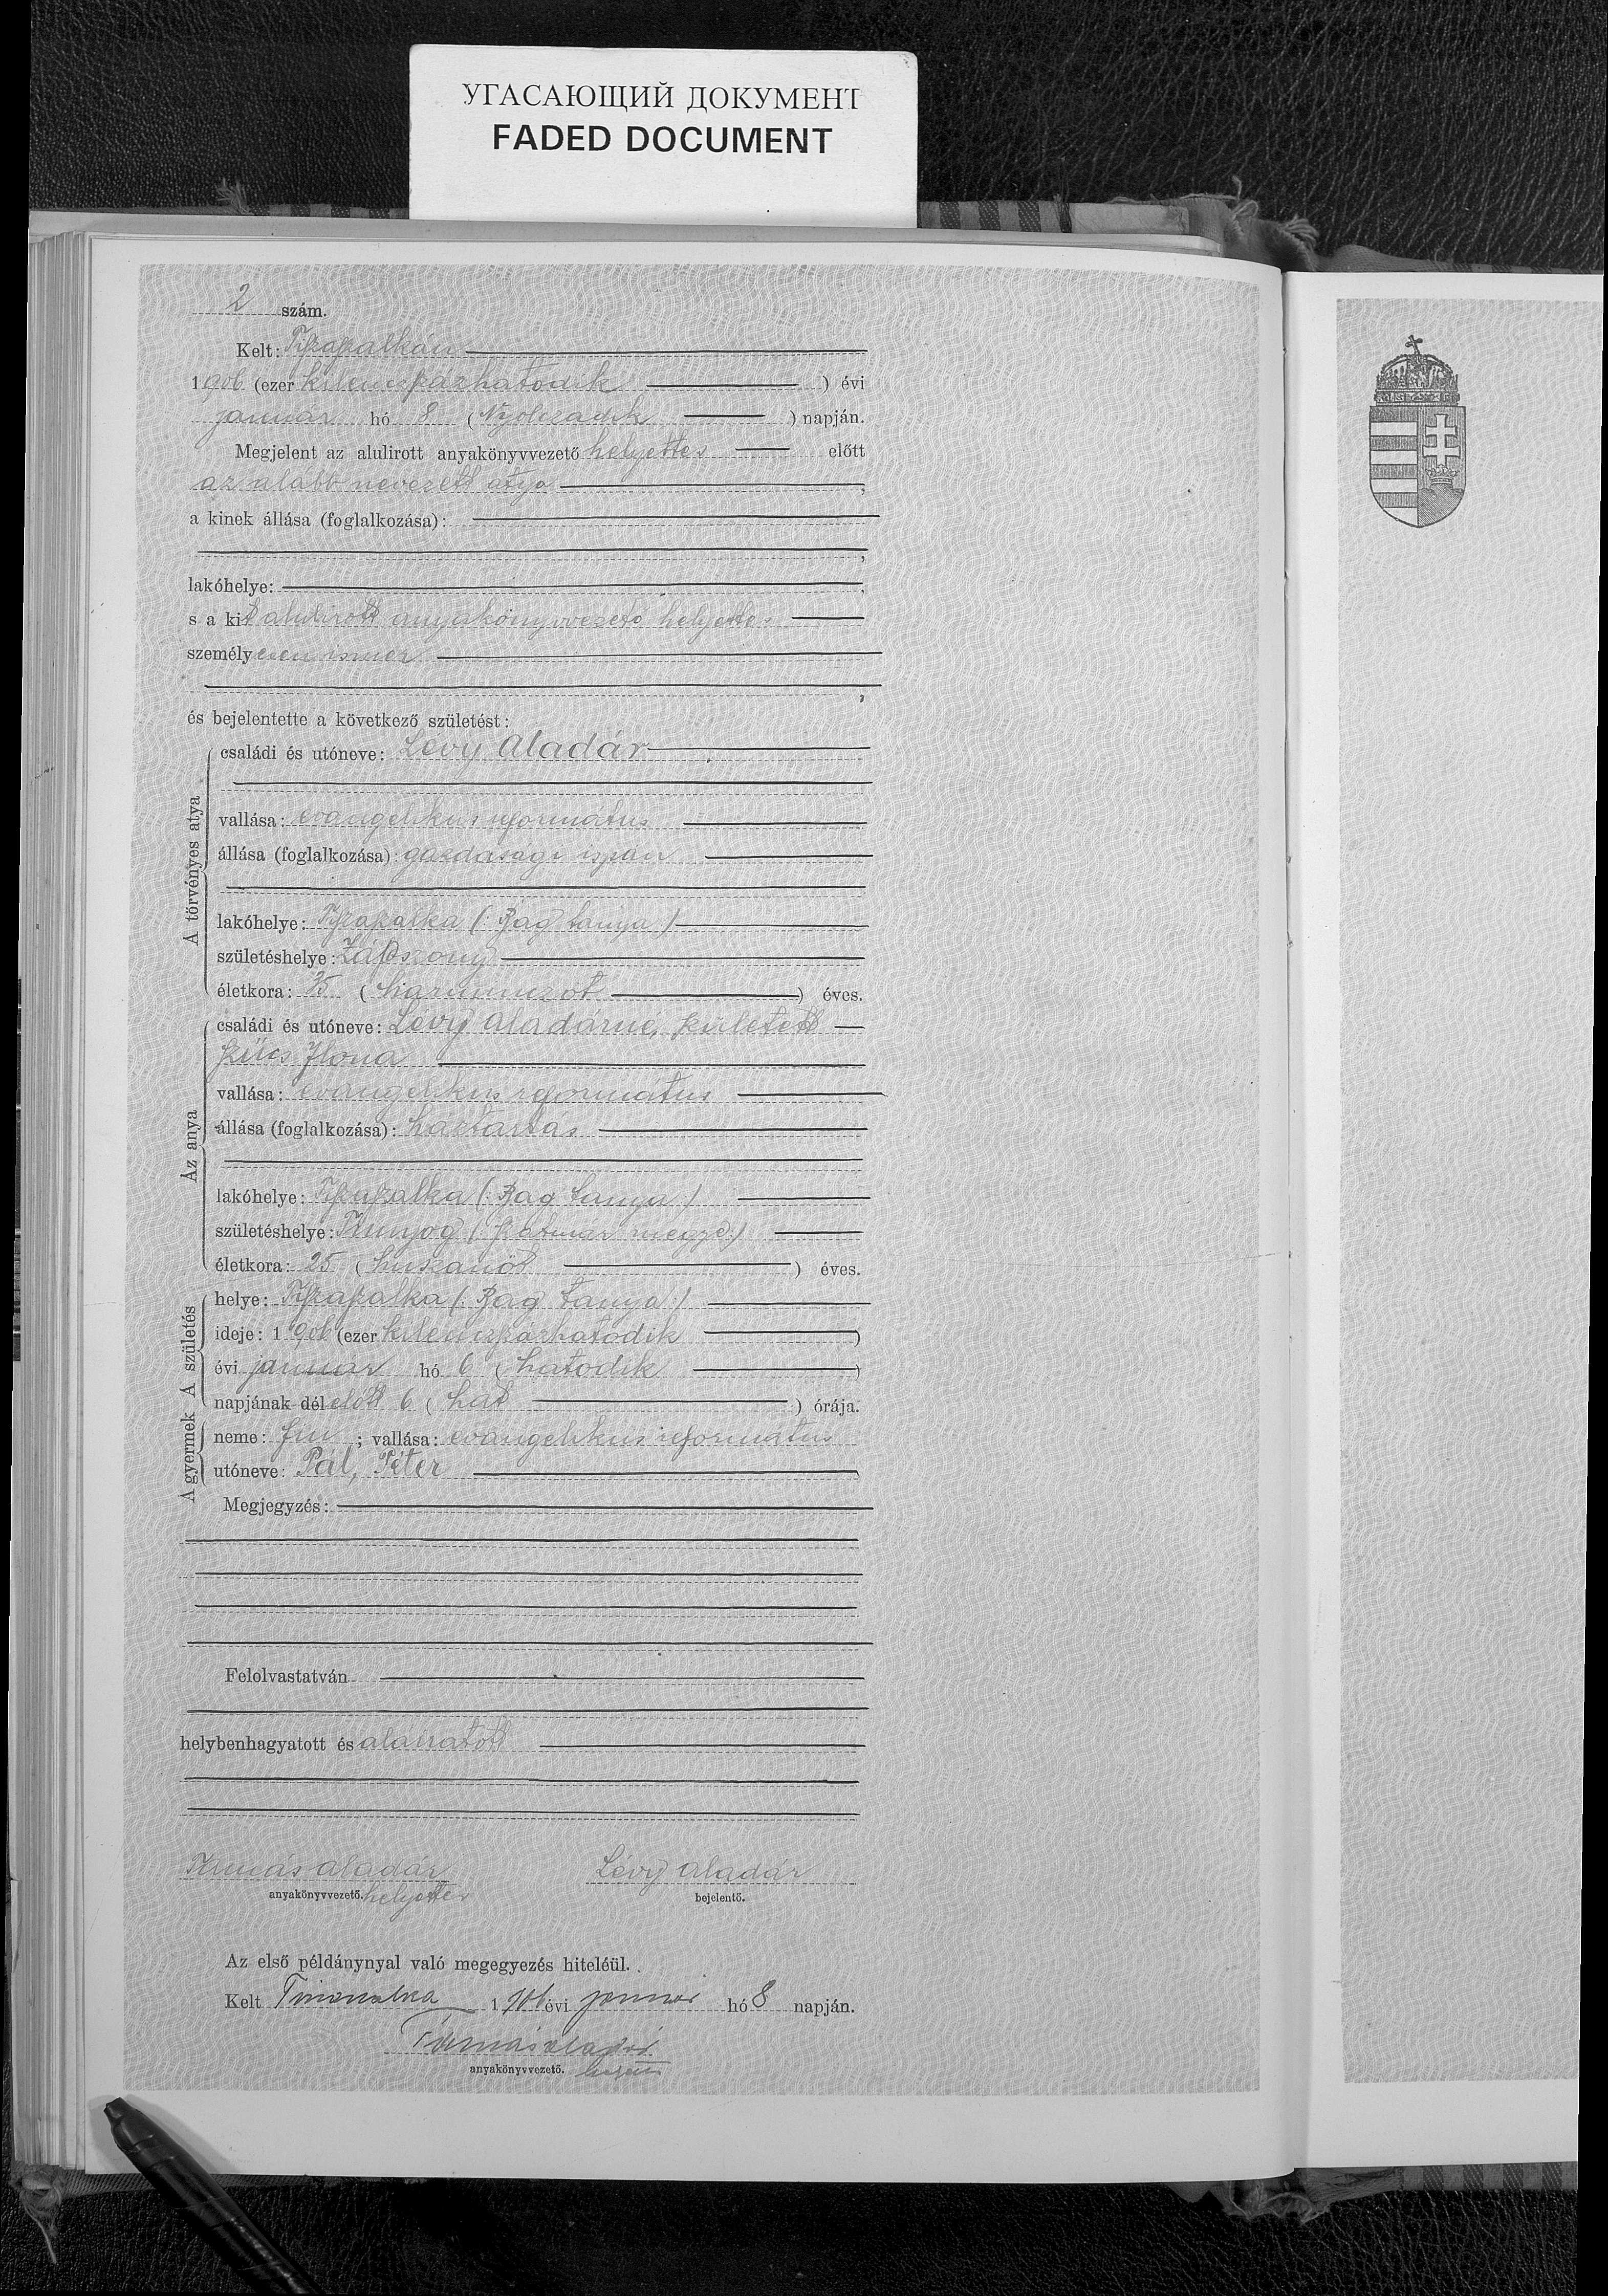 УГАСАЮЩИЙ ДОКУМЕНТ
FADED DOCUMENT
2 szám.
Kelt: Tiszaszalkán
1906 (ezer kilenczszázhatodik) évi
január hó 8 (Nyolczadik) napján.
Megjelent az alulirott anyakönyvvezető helyettes előtt
az alább nevezett atya,
a kinek állása (foglalkozása):
,
lakóhelye: ,
s a kit alulirott anyakönyvvezető helyettes
személyesen ismer
,
és bejelentette a következő születést:
A törvényes atya
családi és utóneve: Lévy Aladár
vallása: evangelikus református
állása (foglalkozása): gazdasági ispán
lakóhelye: Tiszaszalka (: Rag tanya :)
születéshelye: Zápszony
életkora: 35 (harminczöt) éves.
Az anya
családi és utóneve: Lévy Aladárné, született
Szűcs Ilona
vallása: evangelikus református
állása (foglalkozása): háztartás
lakóhelye: Tiszaszalka (: Rag tanya :)
születéshelye: Tunyog (: Szatmár megye :)
életkora: 25 (huszonöt) éves.
A születés
helye: Tiszaszalka (: Rag tanya :)
ideje: 1906 (ezer kilenczszázhatodik)
évi január hó 6 (hatodik)
napjának délelőtt 6 (hat) órája.
A gyermek
neme: fiu; vallása: evangelikus református
utóneve: Pál, Péter
Megjegyzés:
Felolvastatván
helybenhagyatott és aláiratott
Tamás Aladár Lévy Aladár
anyakönyvvezető. helyettes bejelentő.
Az első példánynyal való megegyezés hiteléül.
Kelt Tiszaszalka 1906 évi január hó 8 napján.
Tamás Aladár
anyakönyvvezető. helyettes